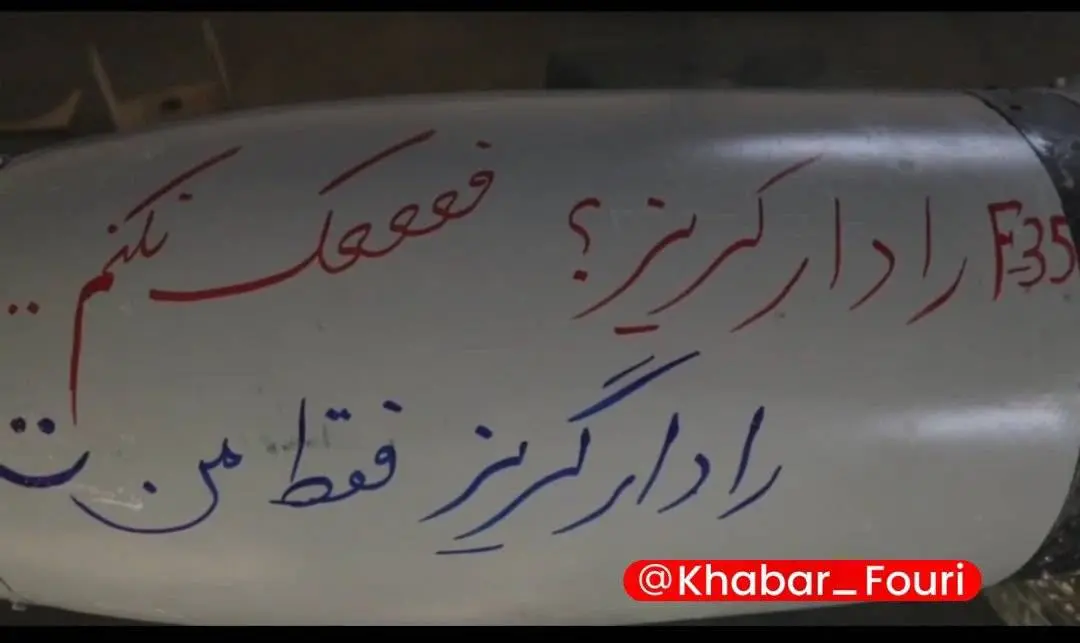 F-35 رادارگریز؟ فففففک نکنم..
رادارگریز فقط من
@Khabar_Fouri